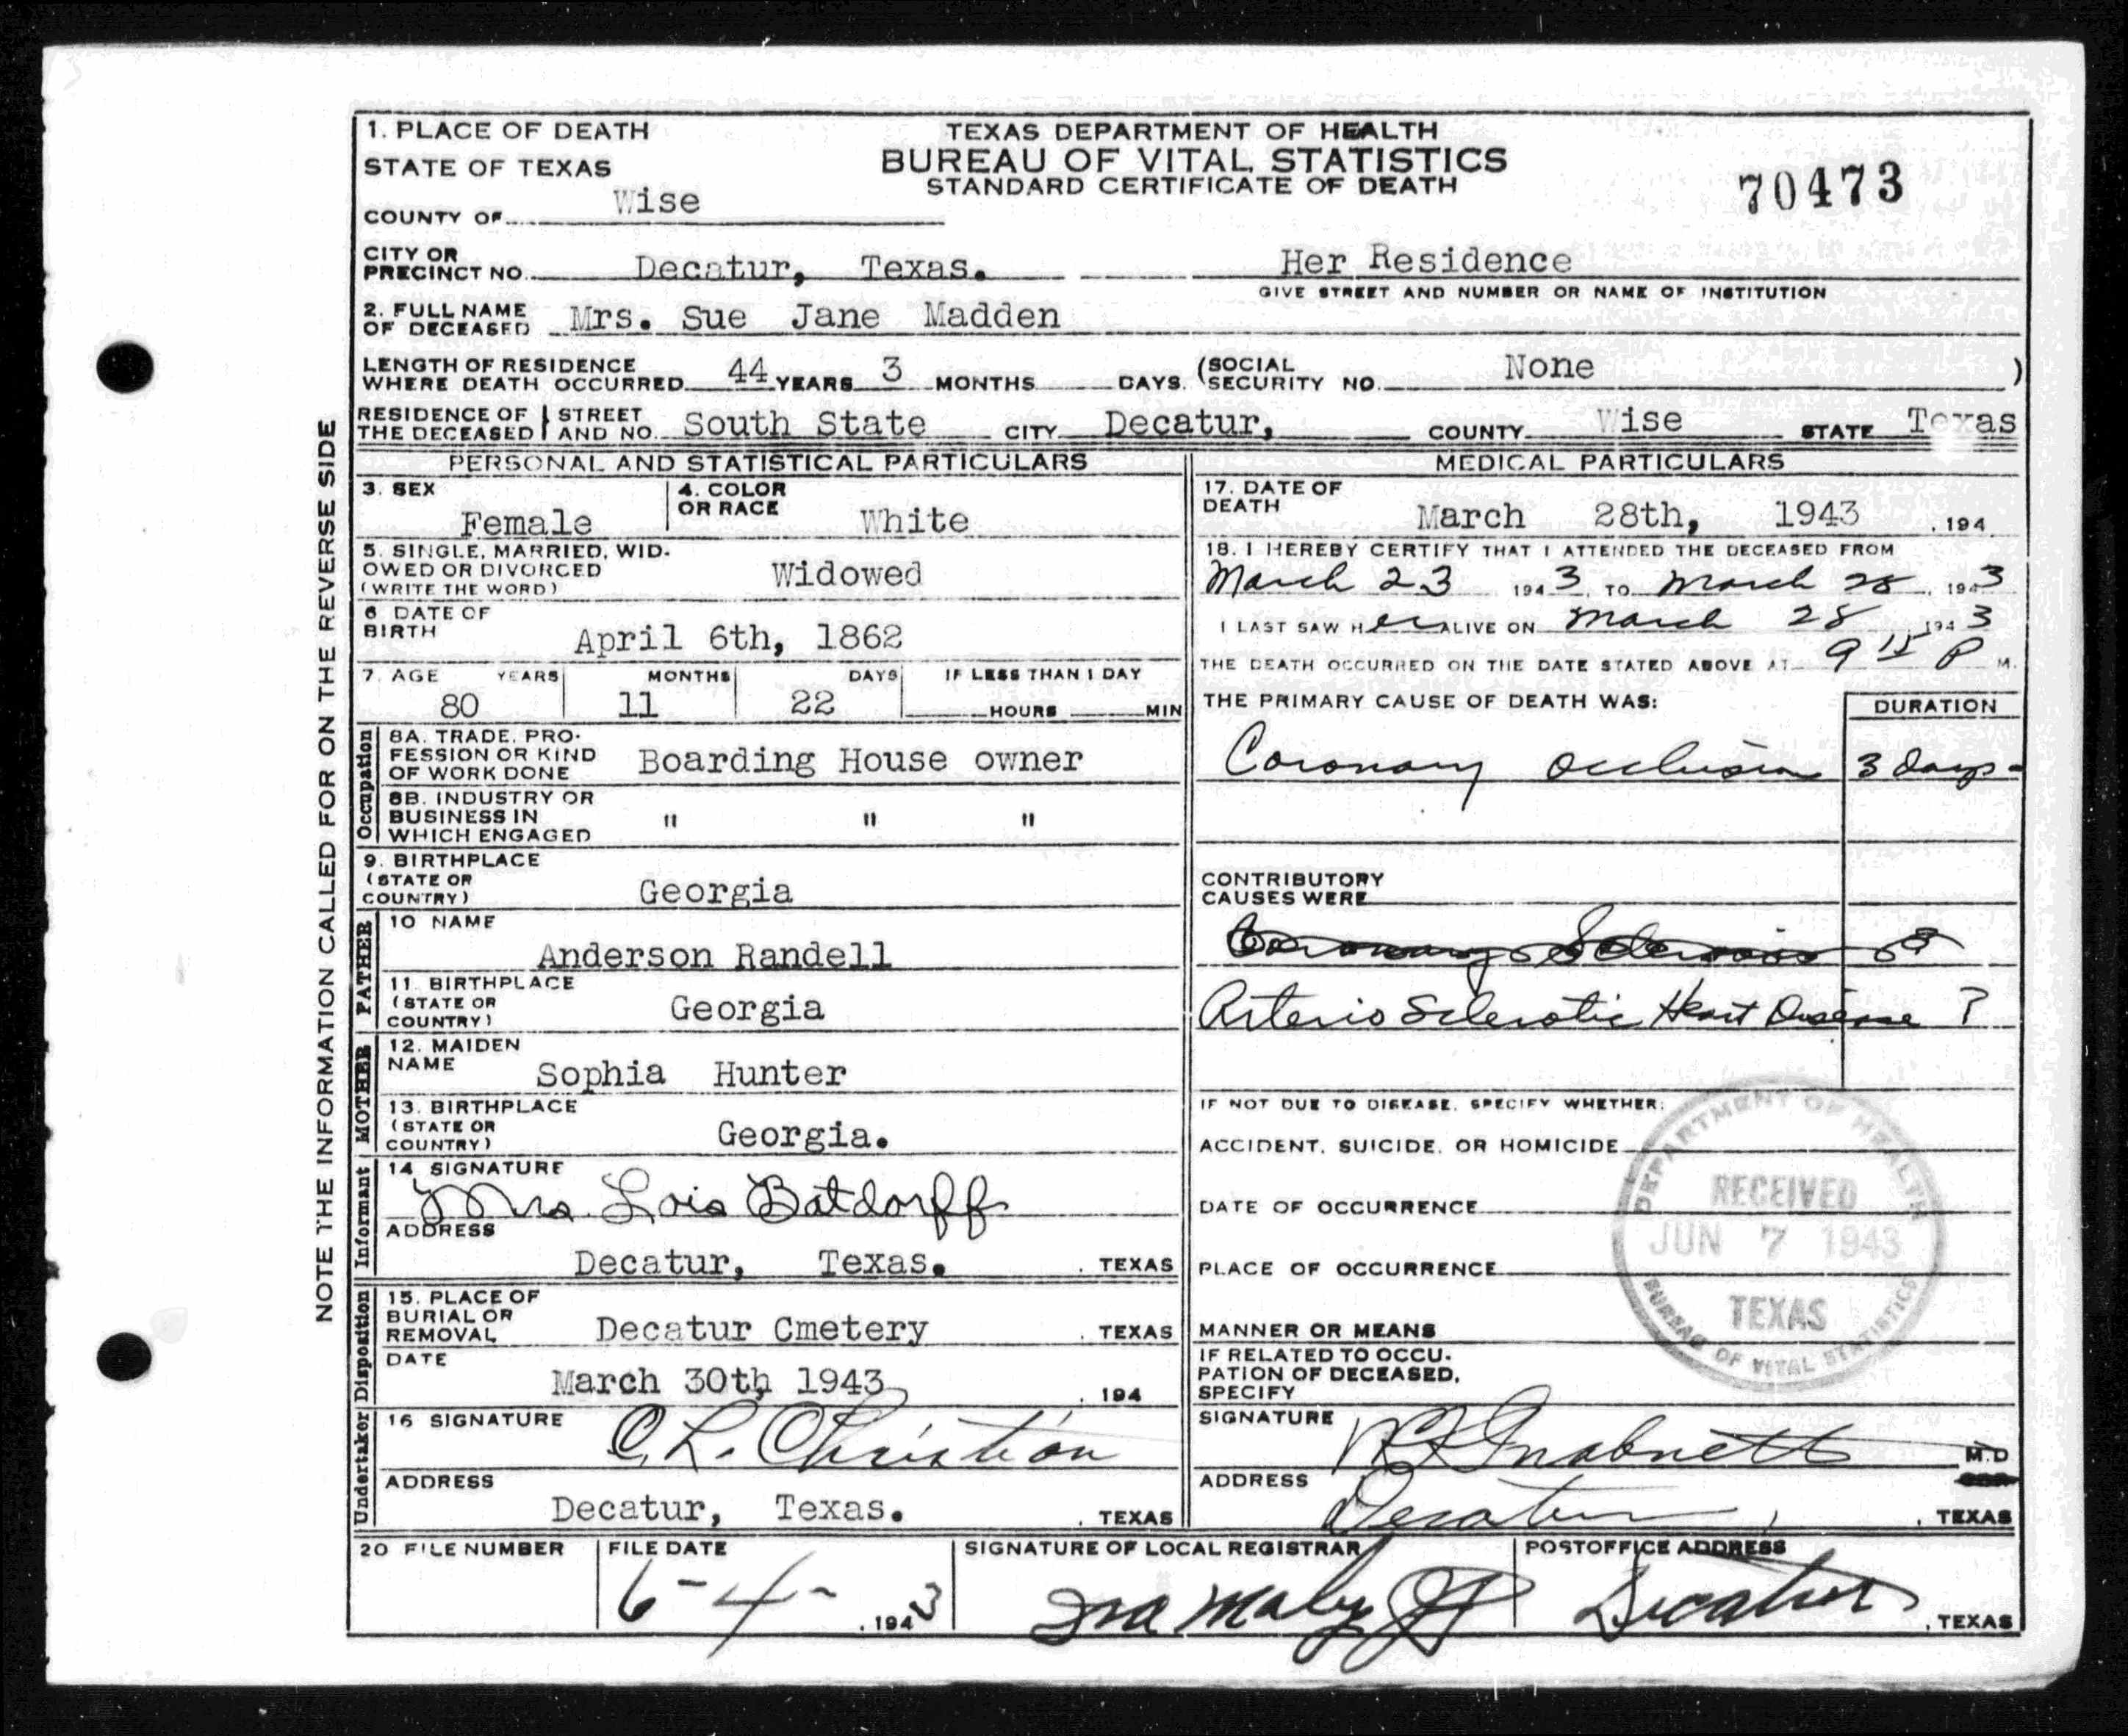 1. PLACE OF DEATH
STATE OF TEXAS
COUNTY OF Wise
TEXAS DEPARTMENT OF HEALTH
BUREAU OF VITAL STATISTICS
STANDARD CERTIFICATE OF DEATH
70473
CITY OR PRECINCT NO. Decatur, Texas.
Her Residence
GIVE STREET AND NUMBER OR NAME OF INSTITUTION
2. FULL NAME OF DECEASED Mrs. Sue Jane Madden
LENGTH OF RESIDENCE WHERE DEATH OCCURRED 44 YEARS 3 MONTHS DAYS. (SOCIAL SECURITY NO. None )
RESIDENCE OF THE DECEASED STREET AND NO. South State CITY Decatur, COUNTY Wise STATE Texas
NOTE THE INFORMATION CALLED FOR ON THE REVERSE SIDE
PERSONAL AND STATISTICAL PARTICULARS
3. SEX Female
4. COLOR OR RACE White
5. SINGLE, MARRIED, WID-
OWED OR DIVORCED Widowed
(WRITE THE WORD)
6 DATE OF BIRTH April 6th, 1862
7. AGE YEARS MONTHS DAYS IF LESS THAN 1 DAY
80 11 22 HOURS MIN
Occupation
8A. TRADE, PRO-
FESSION OR KIND Boarding House owner
OF WORK DONE
8B. INDUSTRY OR
BUSINESS IN " " "
WHICH ENGAGED
9. BIRTHPLACE
(STATE OR
COUNTRY) Georgia
FATHER
10 NAME
Anderson Randell
11. BIRTHPLACE
(STATE OR
COUNTRY) Georgia
MOTHER
12. MAIDEN
NAME Sophia Hunter
13. BIRTHPLACE
(STATE OR
COUNTRY) Georgia.
Informant
14 SIGNATURE
Mrs. Lois Batdorff
ADDRESS
Decatur, Texas. , TEXAS
Disposition
15. PLACE OF
BURIAL OR
REMOVAL Decatur Cmetery , TEXAS
DATE
March 30th 1943, , 194
Undertaker
16 SIGNATURE C. L. Christian
ADDRESS
Decatur, Texas. , TEXAS
MEDICAL PARTICULARS
17. DATE OF
DEATH March 28th, 1943 , 194
18. I HEREBY CERTIFY THAT I ATTENDED THE DECEASED FROM
March 23 1943, TO March 28, 1943
I LAST SAW HER ALIVE ON March 28 1943
THE DEATH OCCURRED ON THE DATE STATED ABOVE AT 9 15 P M.
THE PRIMARY CAUSE OF DEATH WAS: DURATION
Coronary occlusion 3 days-
CONTRIBUTORY
CAUSES WERE
Coronary Sclerosis
Arterio Sclerotic Heart Disease ?
IF NOT DUE TO DISEASE, SPECIFY WHETHER:
ACCIDENT, SUICIDE, OR HOMICIDE
DATE OF OCCURRENCE
PLACE OF OCCURRENCE
MANNER OR MEANS
DEPARTMENT OF HEALTH
RECEIVED
JUN 7 1943
TEXAS
BUREAU OF VITAL STATISTICS
IF RELATED TO OCCU-
PATION OF DECEASED,
SPECIFY
SIGNATURE M.D
ADDRESS
Decatur, , TEXAS
20 FILE NUMBER
FILE DATE
6-4- , 1943
SIGNATURE OF LOCAL REGISTRAR
Ira Maby JP
POSTOFFICE ADDRESS
Decatur , TEXAS